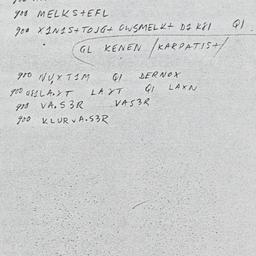 900 MELKS+EFL
900 X1N1S+TOJG+ OWSMELK+ D1 K81 G1
GL KENEN /KARPATIS+/
900 NUXT1M G1 DERNOX
900 LAXT G1 LAXN
900 VA.S3R VAS3R
900 KLURVA.S3R